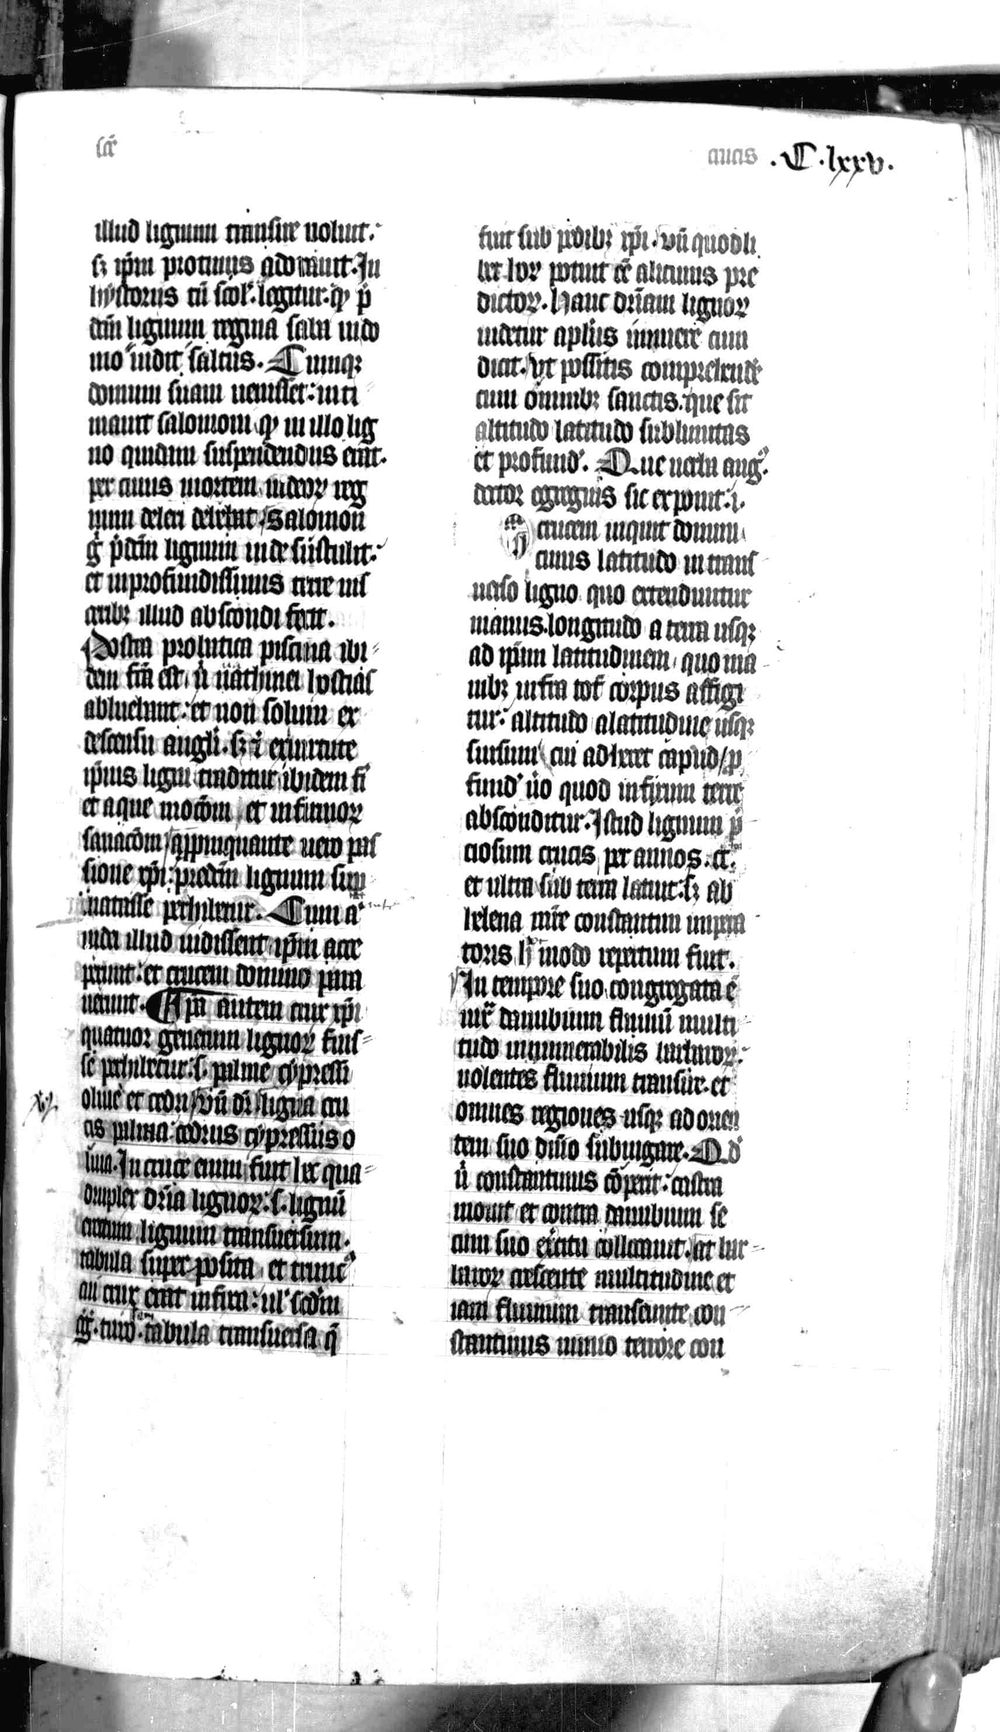 sc̄e
crucis .C.lxxv.
illud lignum transire voluit.
sꝫ ip̄m protinus adoravit. In
hystoriis tn̄ scol'. legitur. ꝙ p̄
dc̄m lignum regina saba in do
mo vidit saltus. Cumqꝫ
domum suam venisset: inti
mavit salomoni ꝙ in illo lig
no quidam suspendendus erat.
per cuius mortem iudeoꝝ reg
num deleri debebat. Salomon
g̊ p̄dc̄m lignum inde sustulit:
et in profundissimis terre vis
ceribꝫ illud abscondi fecit.
Postea probatica piscina ibi
dem fc̄a est. ubi nathinei hostias
abluebant: et non solum ex
descensu angeli. sꝫ ī ex virtute
ip̄ius ligni traditur ibidem fi
et aque moc̄om et infirmoꝝ
sanac̄om appropinquante vero pas
sione xp̄i. predc̄m lignum sup
natasse perhibetur. Cum a
iudei illud vidissent ip̄m acce
perunt: et crucem domino para
verunt. Ip̄a autem crux xp̄i
quatuor generum lignoꝝ fuis
se perhibetur. s. palme cypressi
olive et cedri vn̄ dr̄ ligna cru
cis palma cedrus cypressus o
liva. In cruce enim fuit hec qua
druplex dr̄ia lignoꝝ: s. lignū
erectum lignum transversum.
tabula super posita et truncꝰ
cui crux erat infixa: vl' scd̄m
gg̊. turo. tabula transversa q̄
fuit sub pedibꝫ xp̄i. vn̄ quodli
bet hoꝝ potuit eē alicuius pre
dictoꝝ. Hanc dr̄iam lignoꝝ
videtur apl̄us innuere cum
dicit. Ut possitis comprehendē
cum omnibꝫ sanctis. que sit
altitudo latitudo sublimitas
et profund'. Que verba aug'.
doctor egregius sic exponit. i.
crucem inquit domini
cuius latitudo in trans
verso ligno quo extenduntur
manus. longitudo a terra usqꝫ
ad ip̄am latitudinem quo ma
nibꝫ infra tot' corpus affigi
tur: altitudo a latitudine usqꝫ
sursum cui adheret capud ꝓ
fund' v̊o quod infixum terre
absconditur. Istud lignum p̄
ciosum crucis per annos. cc.
et ultra sub terra latuit: sꝫ ab
helena mr̄e constantini impera
toris h̊ modo repertum fuit.
In tempore suo congregata ē
iux̄ danubium fluviū multi
tudo innumerabilis barbaroꝝ:
volentes fluvium transire. et
omnes regiones usqꝫ ad orien
tem suo dn̄io subiugare. Qd̄
ū constantinus c̄operit: castra
movit et contra danubium se
cum suo ex̄citu collocavit. at bar
baroꝝ crescente multitudine et
iam fluvium transeunte con
stantinus nimio terrore con